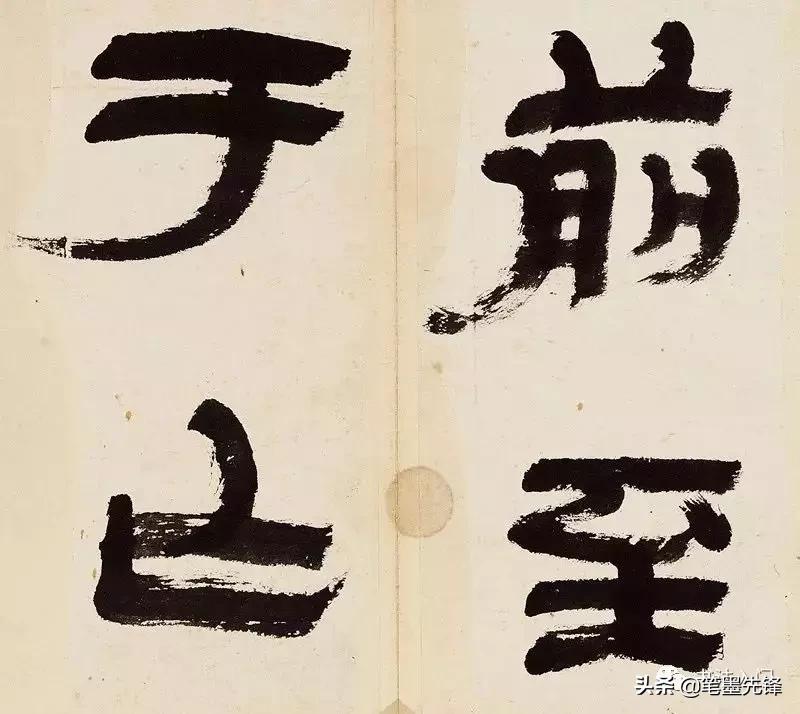 前至
于
头条 @笔墨先锋